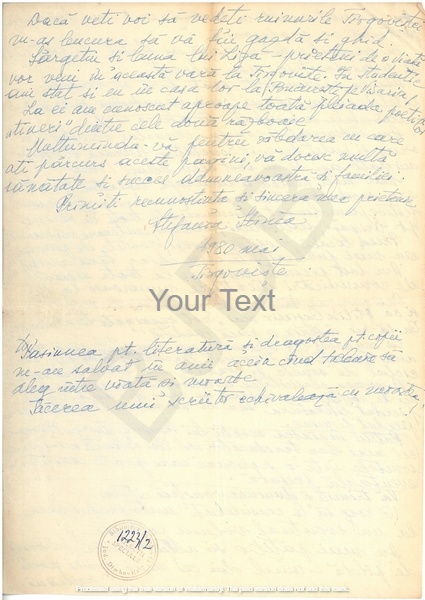 Dacă veți voi să vedeți ruinurile Tîrgoviștei
m-aș bucura să vă fiu gazdă și ghid.
Sărgetiu și buna lui Liza – prieteni de o viață
vor veni în această vară la Tîrgoviște. În studenție
am stat și eu în casa lor la
La ei am cunoscut aproape toată pleiada poeților
"tineri" dintre cele două războaie
Mulțumindu-vă pentru răbdarea cu care
ați parcurs aceste pagini, vă doresc multă
sănătate și succes dumneavoastră și familiei.
Primiți recunoștința și sincera mea prietenie
Ștefania Stînea
1980 mai
Tîrgoviște
Your Text
Pasiunea pt. literatură și dragostea pt. copii
ne-au salvat în anii aceia cînd trebuia să
aleg între viață și moarte
Tăcerea unui scriitor echivalează cu moartea
1223/2
Processed using the free version of Watermarkly. The paid version does not add this mark.